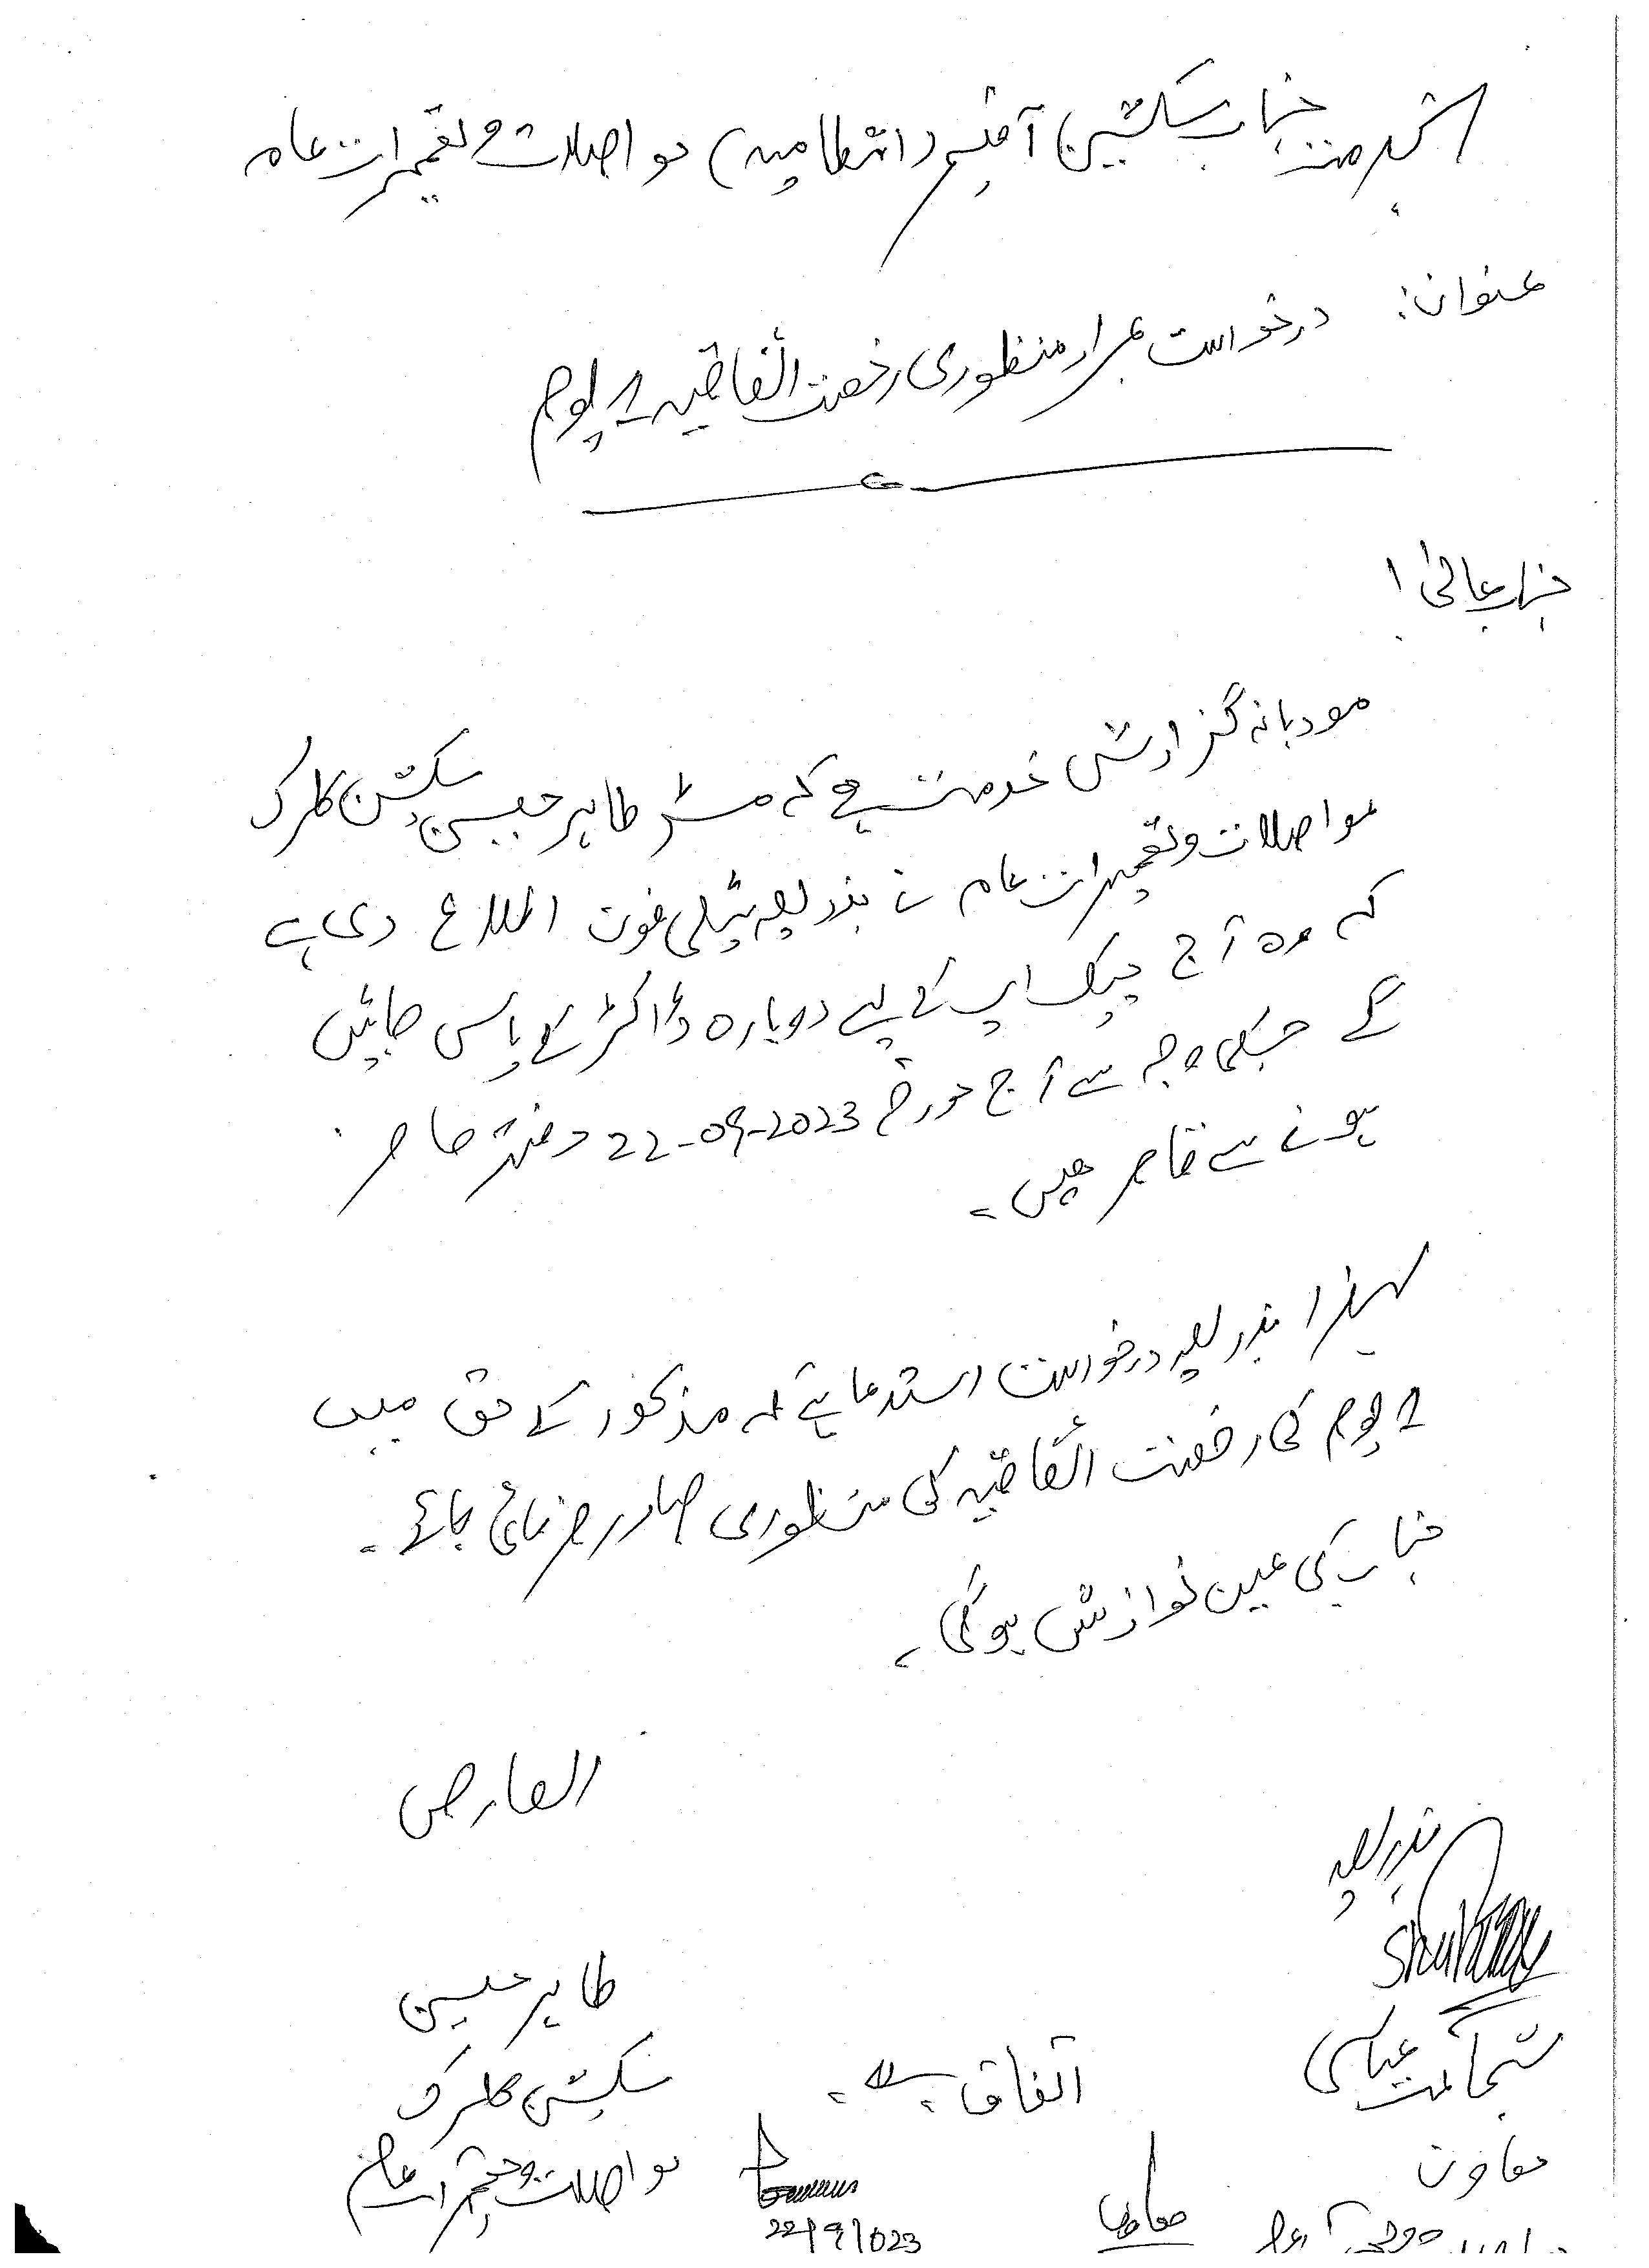 بخدمت جناب سیکشن آفیسر (انتظامیہ) مواصلات و تعمیرات عامہ
عنوان: درخواست بمراد منظوری رخصت اتفاقیہ 1 یوم
جناب عالیٰ!
مودبانہ گزارش خدمت ہے کہ مسٹر طاہر حسین سیکشن کلرک
مواصلات و تعمیرات عامہ نے بذریعہ ٹیلی فون اطلاع دی ہے
کہ وہ آج چیک اپ کے لیے دوبارہ ڈاکٹر کے پاس جائیں
گے جسکی وجہ سے آج مورخہ 22-09-2023 دفتر حاضر
ہونے سے قاصر ہیں۔
لہذا بذریعہ درخواست استدعا ہے کہ مذکور کے حق میں
1 یوم کی رخصت اتفاقیہ کی منظوری صادر فرمائی جائے۔
جناب کی عین نوازش ہوگی۔
العارض
بذریعہ
طاہر حسین
شجاعت عباسی
سیکشن کلرک
اتفاق ہے۔
معاون
مواصلات و تعمیرات عامہ
22/9/023